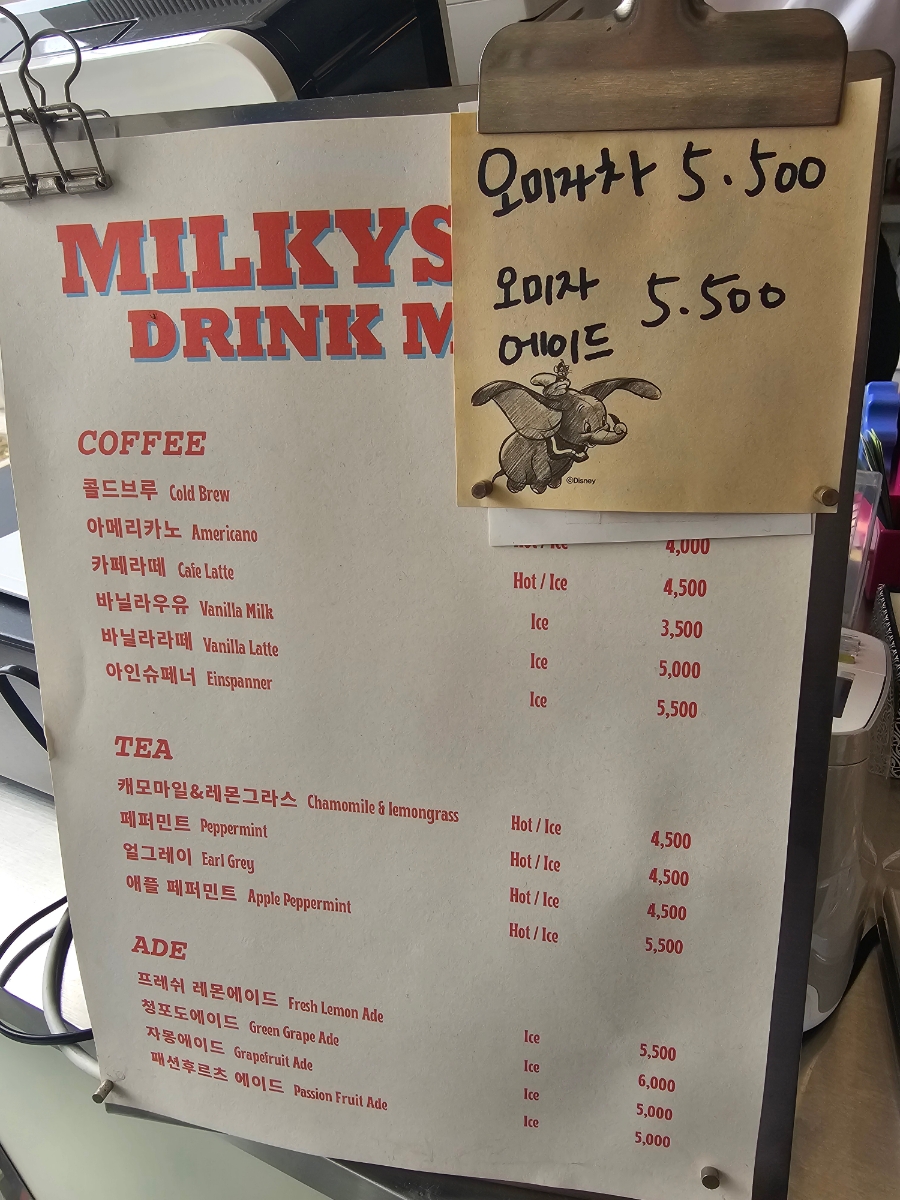 오미자차 5.500
오미자 5.500
에이드
©Disney
MILKYS
DRINK M
COFFEE
콜드브루 Cold Brew
아메리카노 Americano Hot / Ice 4,000
카페라떼 Cafe Latte Hot / Ice 4,500
바닐라우유 Vanilla Milk Ice 3,500
바닐라라떼 Vanilla Latte Ice 5,000
아인슈페너 Einspanner Ice 5,500
TEA
캐모마일&레몬그라스 Chamomile & lemongrass Hot / Ice 4,500
페퍼민트 Peppermint Hot / Ice 4,500
얼그레이 Earl Grey Hot / Ice 4,500
애플 페퍼민트 Apple Peppermint Hot / Ice 5,500
ADE
프레쉬 레몬에이드 Fresh Lemon Ade Ice 5,500
청포도에이드 Green Grape Ade Ice 6,000
자몽에이드 Grapefruit Ade Ice 5,000
패션후르츠 에이드 Passion Fruit Ade Ice 5,000